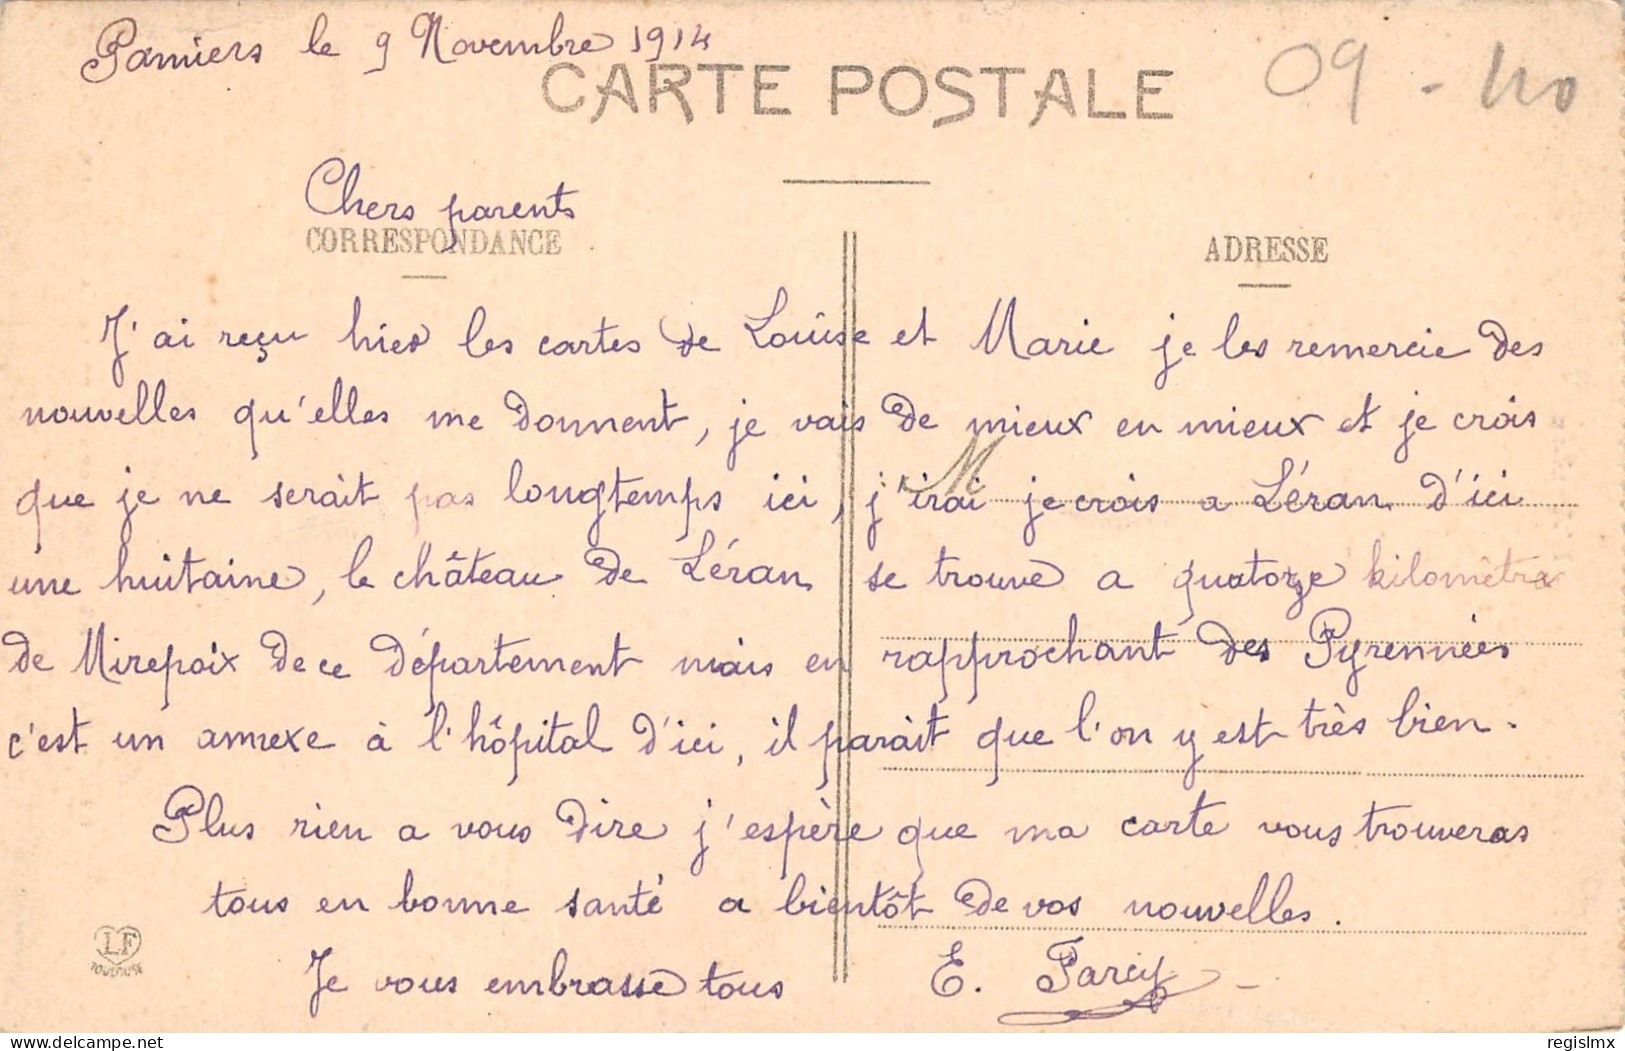 Pamiers le 9 Novembre 1914
CARTE POSTALE
09 - 110
Chers parents
CORRESPONDANCE
ADRESSE
J'ai reçu hier les cartes de Louise et Marie je les remercie des
nouvelles qu'elles me donnent, je vais de mieux en mieux et je crois
que je ne serait pas longtemps ici, j'irai je crois a Léran d'ici
une huitaine, le château de Léran se trouve a quatorze kilomètres
de Mirepoix de ce département mais en rapprochant des Pyrennées
c'est un annexe à l'hôpital d'ici, il parait que l'on y est très bien.
Plus rien a vous dire j'espère que ma carte vous trouveras
tous en bonne santé a bientôt de vos nouvelles.
Je vous embrasse tous E. Parcy
LF
TOULOUSE
delcampe.net
regislmx